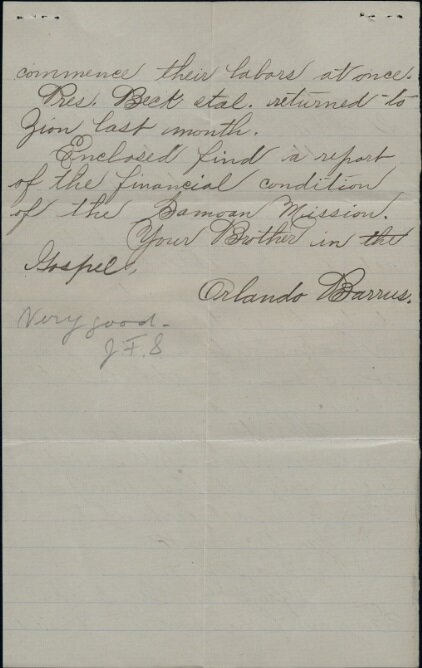 commence their labors at once.
Pres. Beck et al. returned to
Zion last month.
Enclosed find a report
of the financial condition
of the Samoan Mission.
Your Brother in the
Gospel,
Orlando Barrus.
Very good.
J. F. S